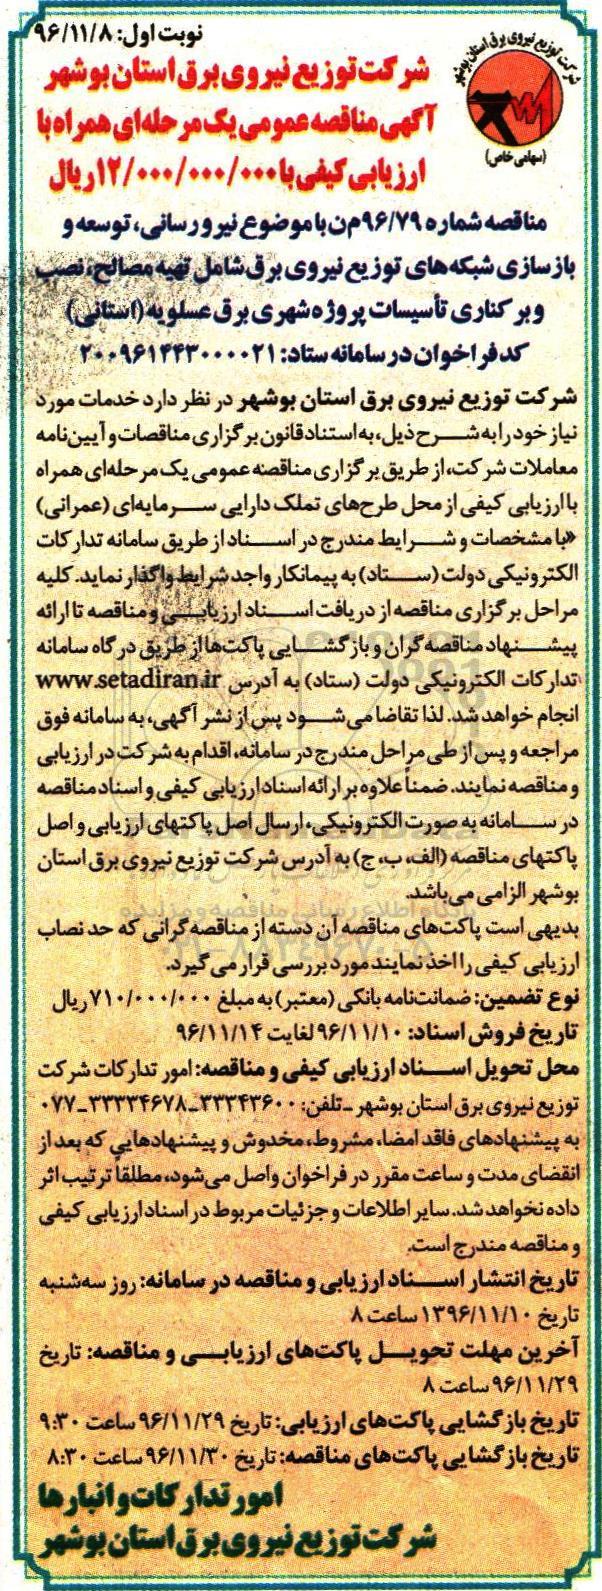 نوبت اول: ۹۶/۱۱/۸
شرکت توزیع نیروی برق استان بوشهر
(سهامی خاص)
شرکت توزیع نیروی برق استان بوشهر
آگهی مناقصه عمومی یک مرحله‌ای همراه با
ارزیابی کیفی با ۱۲/۰۰۰/۰۰۰/۰۰۰ ریال
مناقصه شماره ۹۶/۷۹م‌ن با موضوع نیرورسانی، توسعه و
بازسازی شبکه‌های توزیع نیروی برق شامل تهیه مصالح، نصب
و برکناری تأسیسات پروژه شهری برق عسلویه (استانی)
کد فراخوان در سامانه ستاد: ۲۰۰۹۶۱۴۴۳۰۰۰۰۲۱
شرکت توزیع نیروی برق استان بوشهر در نظر دارد خدمات مورد
نیاز خود را به شرح ذیل، به استناد قانون برگزاری مناقصات و آیین‌نامه
معاملات شرکت، از طریق برگزاری مناقصه عمومی یک مرحله‌ای همراه
با ارزیابی کیفی از محل طرح‌های تملک دارایی سرمایه‌ای (عمرانی)
«با مشخصات و شرایط مندرج در اسناد از طریق سامانه تدارکات
الکترونیکی دولت (ستاد) به پیمانکار واجد شرایط واگذار نماید. کلیه
مراحل برگزاری مناقصه از دریافت اسناد ارزیابی و مناقصه تا ارائه
پیشنهاد مناقصه‌گران و بازگشایی پاکت‌ها از طریق درگاه سامانه
تدارکات الکترونیکی دولت (ستاد) به آدرس www.setadiran.ir
انجام خواهد شد. لذا تقاضا می‌شود پس از نشر آگهی، به سامانه فوق
مراجعه و پس از طی مراحل مندرج در سامانه، اقدام به شرکت در ارزیابی
و مناقصه نمایند. ضمناً علاوه بر ارائه اسناد ارزیابی کیفی و اسناد مناقصه
در سامانه به صورت الکترونیکی، ارسال اصل پاکتهای ارزیابی و اصل
پاکتهای مناقصه (الف، ب، ج) به آدرس شرکت توزیع نیروی برق استان
بوشهر الزامی می‌باشد.
بدیهی است پاکت‌های مناقصه آن دسته از مناقصه‌گرانی که حد نصاب
ارزیابی کیفی را اخذ نمایند مورد بررسی قرار می‌گیرد.
نوع تضمین: ضمانت‌نامه بانکی (معتبر) به مبلغ ۷۱۰/۰۰۰/۰۰۰ ریال
تاریخ فروش اسناد: ۹۶/۱۱/۱۰ لغایت ۹۶/۱۱/۱۴
محل تحویل اسناد ارزیابی کیفی و مناقصه: امور تدارکات شرکت
توزیع نیروی برق استان بوشهر ـ تلفن: ۳۳۳۴۳۶۰۰ـ۳۳۳۳۴۶۷۸ـ۰۷۷
به پیشنهادهای فاقد امضا، مشروط، مخدوش و پیشنهادهایی که بعد از
انقضای مدت و ساعت مقرر در فراخوان واصل می‌شود، مطلقاً ترتیب اثر
داده نخواهد شد. سایر اطلاعات و جزئیات مربوط در اسناد ارزیابی کیفی
و مناقصه مندرج است.
تاریخ انتشار اسناد ارزیابی و مناقصه در سامانه: روز سه‌شنبه
تاریخ ۱۳۹۶/۱۱/۱۰ ساعت ۸
آخرین مهلت تحویل پاکت‌های ارزیابی و مناقصه: تاریخ
۹۶/۱۱/۲۹ ساعت ۸
تاریخ بازگشایی پاکت‌های ارزیابی: تاریخ ۹۶/۱۱/۲۹ ساعت ۹:۳۰
تاریخ بازگشایی پاکت‌های مناقصه: تاریخ ۹۶/۱۱/۳۰ ساعت ۸:۳۰
امور تدارکات و انبارها
شرکت توزیع نیروی برق استان بوشهر